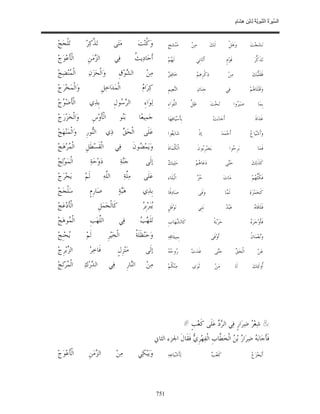 السِّيرَة النَّبَوِيَّة لابْنِ هِشَام
نَشَجْتَ وَهَلْ لَكَ مِنْ مَنْشَجٍ وَكُنْتَ مَتَى تَذَّكِرْ تَلْجَجْ
تَذَكُّرَ قَوْمٍ أَتَانِي لَهُمْ أَحَادِيثُ فِي الزَّمَنِ الْأَعْوَجْ
فَقَلْبُكَ مِنْ ذِكْرِهِمْ خَافِقٌ مِنْ الشَّوْقِ وَالْحَزَنِ الْمُنْضِجْ
وَقَتْلَاهُمْ فِي جِنَانِ النَّعِيمِ كِرَامُ الْمَدَاخِلِ وَالْمَخْرَجْ
بِمَا صَبَرُوا تَحْتَ ظِلِّ اللِّوَاءِ لِوَاءِ الرَّسُولِ بِذِي الْأَضْوُجْ
غَدَاةَ أَجَابَتْ بِأَسْيَافِهَا جَمِيعًا بَنُو الْأَوْسِ وَالْخَزْرَجْ
وَأَشْيَاعُ أَحْمَدَ إذْ شَايَعُوا عَلَى الْحَقِّ ذِي النُّورِ وَالْمَنْهَجْ
فَمَا بَرِحُوا يَضْرِبُونَ الْكُمَاةَ وَيَمْضُونَ فِي الْقَسْطَلِ الْمُرْهَجْ
كَذَلِكَ حَتَّى دَعَاهُمْ مَلِيكٌ إلَى جَنَّةٍ دَوْحَةِ الْمَوْلِجْ
فَكُلُّهُمْ مَاتَ حُرَّ الْبَلَاءِ عَلَى مِلَّةِ اللَّهِ لَمْ يَحْرَجْ
كَحَمْزَةَ لَمَّا وَفَى صَادِقًا بِذِي هَبَّةٍ صَارِمٍ سَلْجَجْ
فَلَاقَاهُ عَبْدُ بَنِي نَوْفَلٍ يُبَرْبِرُ كَالْجَمَلِ الْأَدْعَجْ
فَأَوْجَرَهُ حَرْبَةً كَالشِّهَابِ تَلَهَّبُ فِي اللَّهَبِ الْمُوهَجْ
وَنُعْمَانُ أَوْفَى بِمِيثَاقِهِ وَحَنْظَلَةُ الْخَيْرِ لَمْ يُحْنَجْ
عَنْ الْحَقِّ حَتَّى غَدَتْ رُوحُهُ إلَى مَنْزِلٍ فَاخِرِ الزِّبْرِجْ
أُولَئِكَ لَا مَنْ ثَوَى مِنْكُمْ مِنْ النَّارِ فِي الدَّرْكِ الْمُرْتَجْ
شِعْرُ ضِرَارٍ فِي الرَّدِّ عَلَى كَعْبٍ
فَأَجَابَهُ ضِرَارُ بْنُ الْخَطَّابِ الْفِهْرِيُّ فَقَالَ الجزء الثاني
أَيَجْزَعُ كَعْبٌ لِأَشْيَاعِهِ وَيَبْكِي مِنْ الزَّمَنِ الْأَعْوَجْ
751